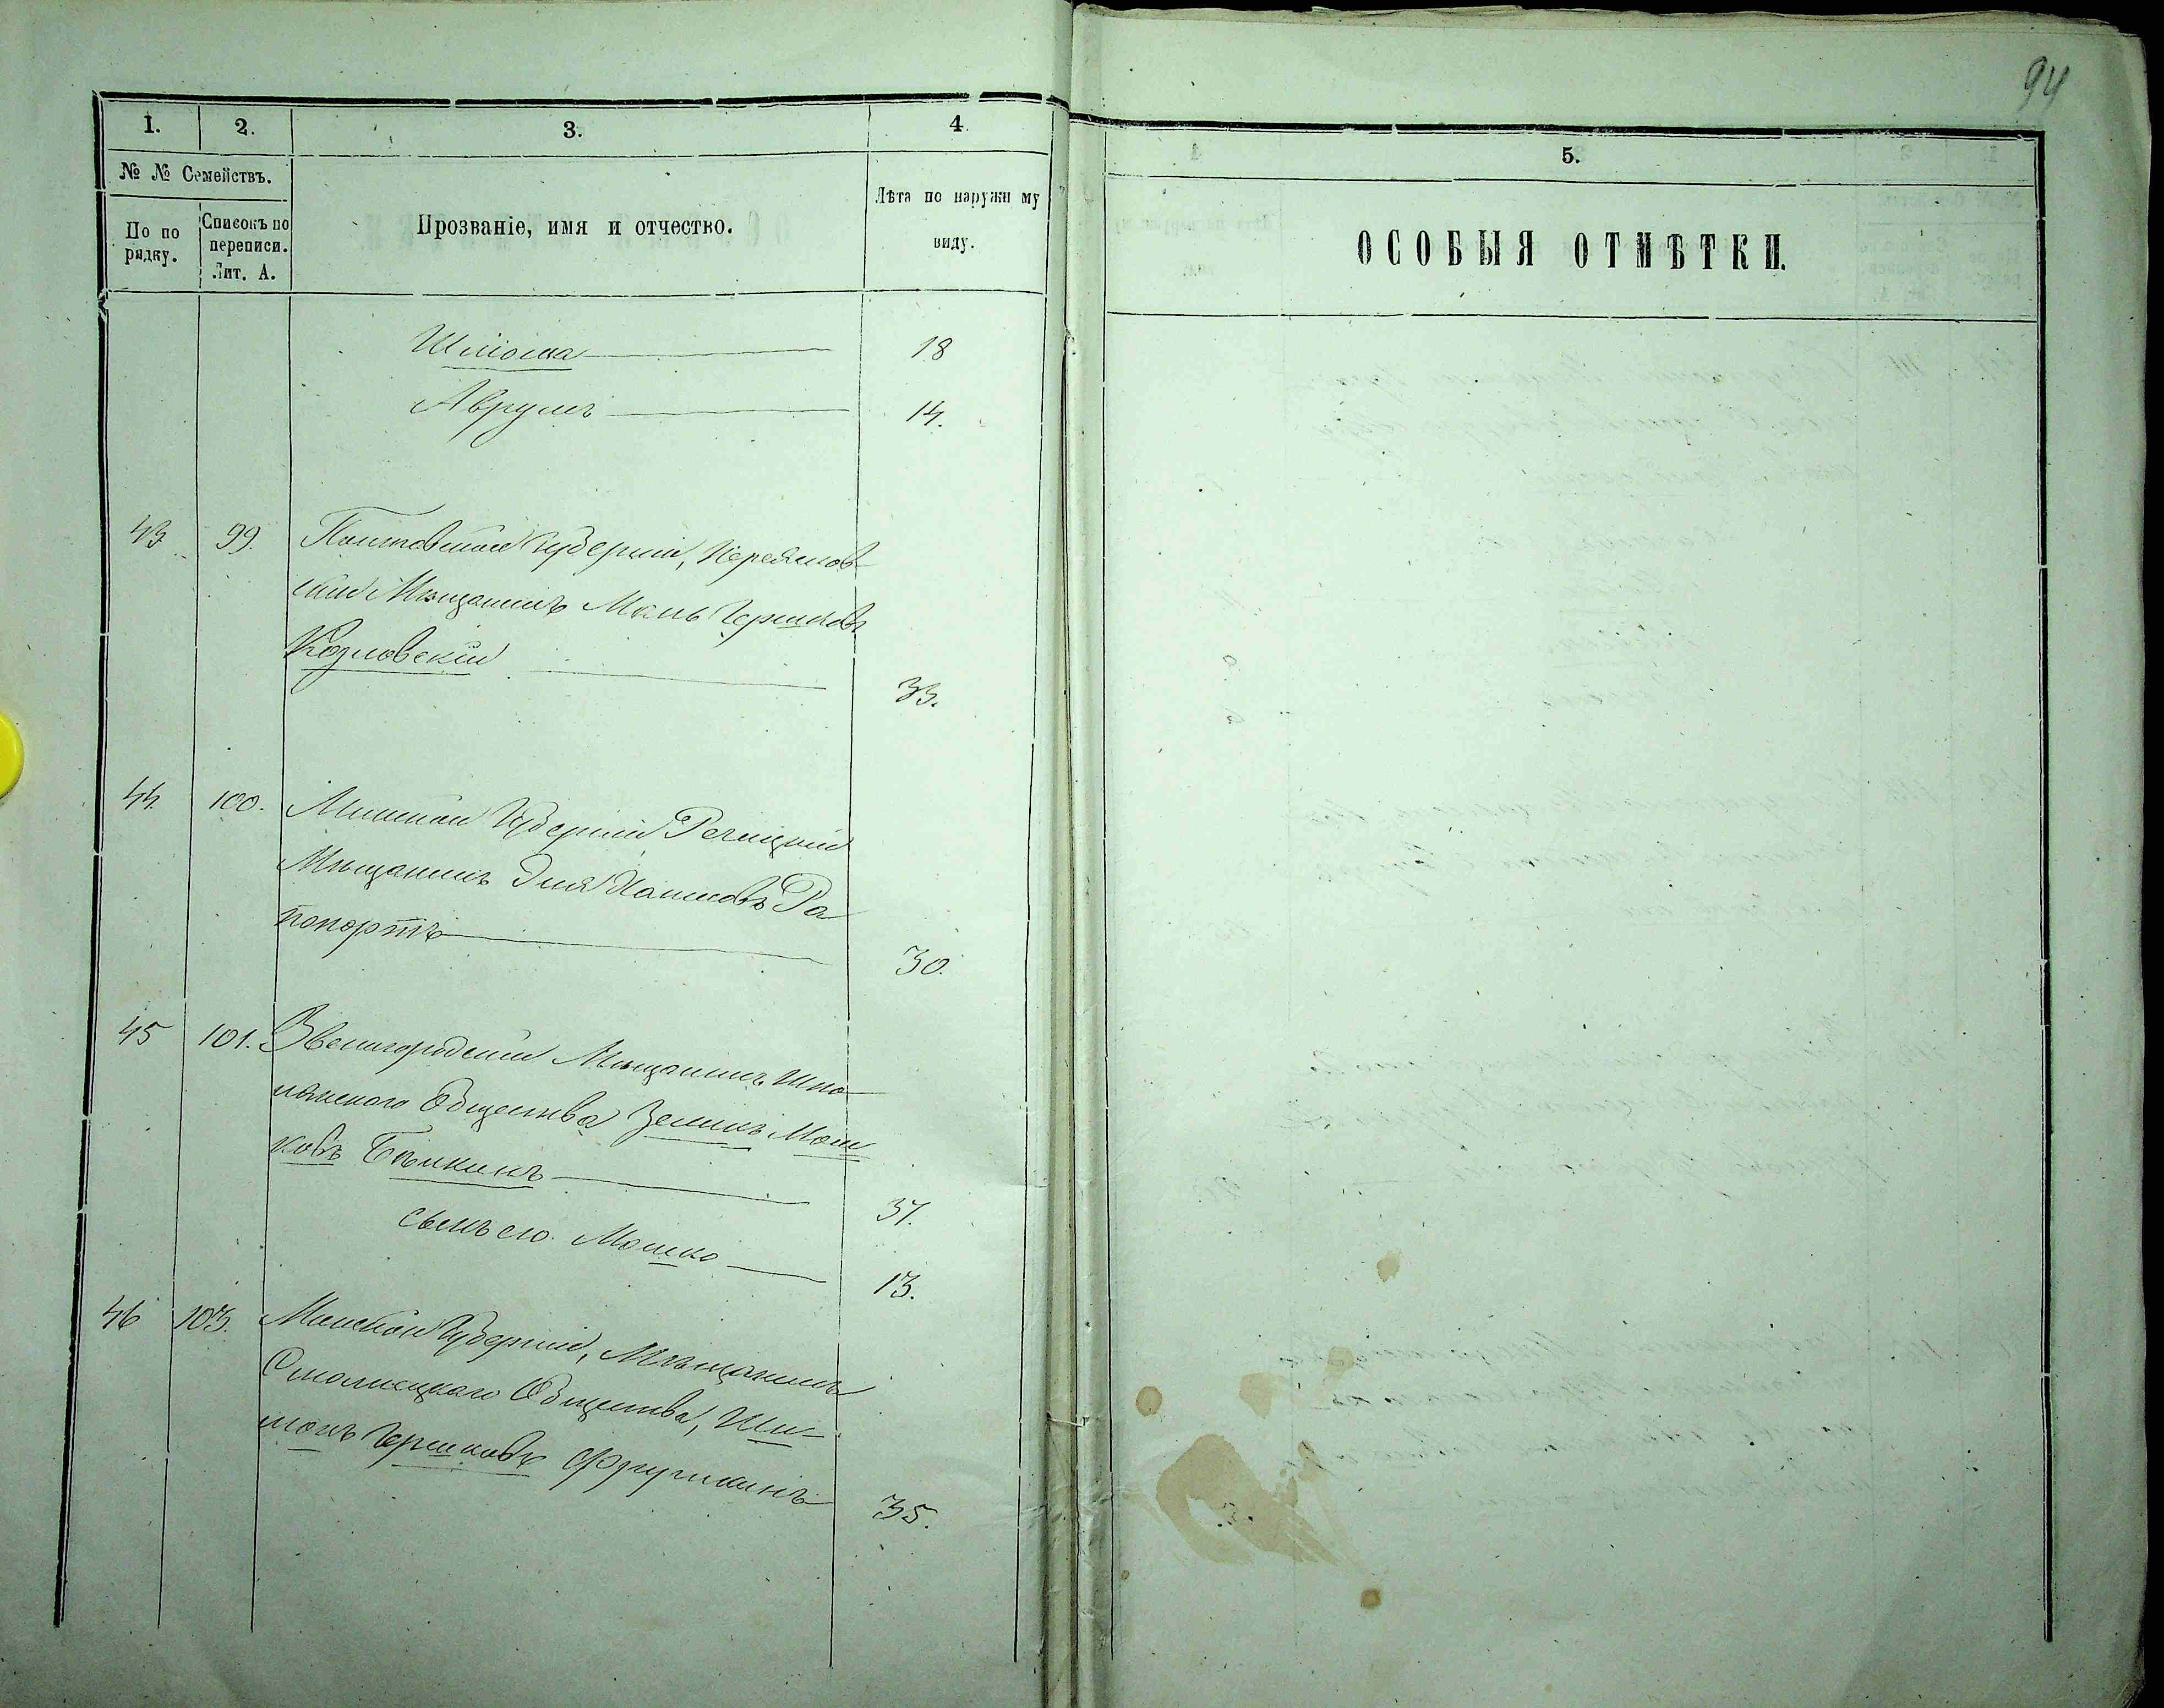 94
1. 2. 3. 4. 5.
№ № Семействъ.
По по рядку.
Списокъ по переписи. Лит. А.
Прозваніе, имя и отчество.
Лѣта по наружн му виду.
ОСОБЫЯ ОТМѢТКИ.
Шлiома 18
Аврумъ 14.
43. 99. Полтавской Губерніи, Переяслов
скій Мѣщанинъ Мань Гершковъ
Козловскій 33.
44. 100. Минской Губерніи Речицкій
Мѣщанинъ Эля Хаимовъ Ра
попортъ 30.
45 101. Звенигородскій Мѣщанинъ Шпо
лянскаго Общества Зеликъ Мош
ковъ Бѣлкинъ 37.
сынъ его Мошко 13.
46 103. Минской Губерніи, Мѣщанинъ
Общества, Ши-
монъ Гершковъ Фружкинъ 35.